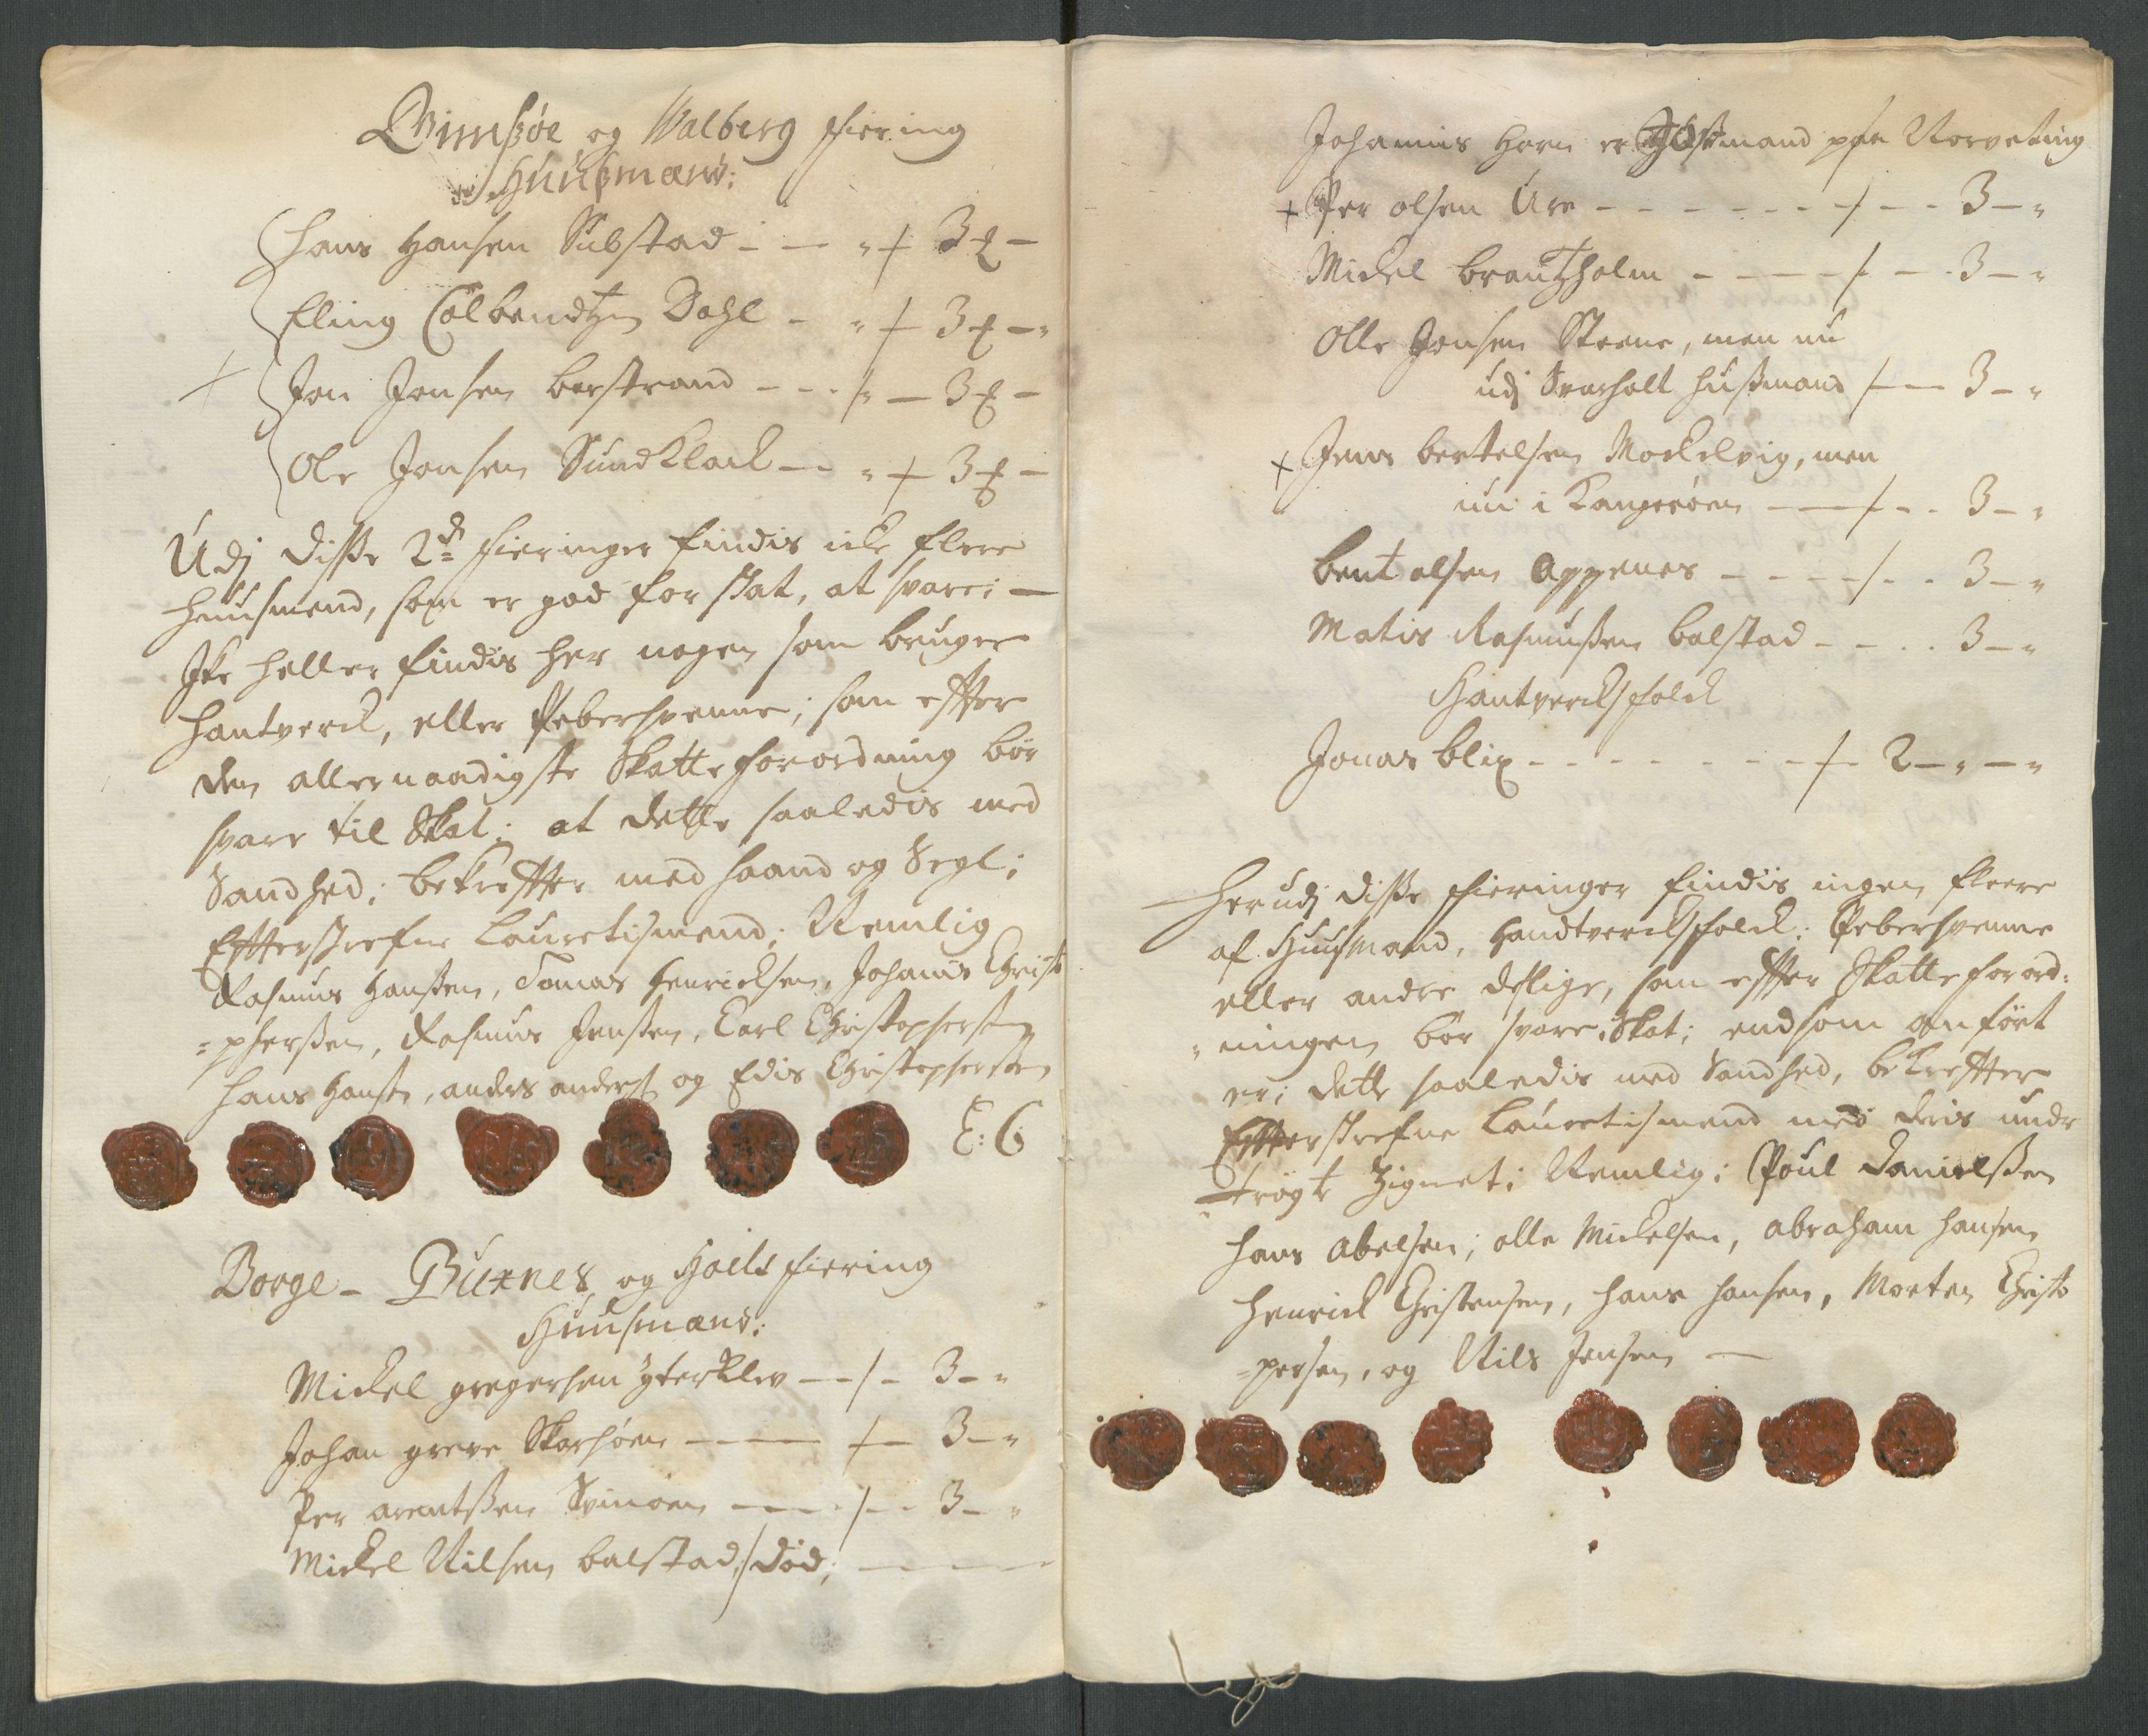 Gimsøe og Walberg fiering
Huusmænd:
Hans Hansen Substad - - - 3 -
Eling Colbendtzen Dahl - - 3 -
Jon Jonsen berstrand - - - 3 -
Ole Jonsen Sundklack - - 3 -
Udj disse 2de fieringer findis icke flere
huusmend, som er god for skat, at svare; -
Ike heller findis her nogen som bruger
handtverck, eller Pebersvenne; som effter
den allernaadigste Skatte forordning bør
svare til Skat; at dette saaledis med
Sandhed; bekreffter med haand og Segl;
Effterskrefne Lauretismend; Nemlig
Rasmus Hanssen, Tomas Henricksen, Johanis Christo
=pherssen, Rasmus Jenssen, Carl Christophersen
Hans Hansen, anders anders: og Edis Christophersen
E: C
Borge - Buxnes og Hoels fiering
Huusmænd:
Mickel gregersen yterklev - - - 3 -
Johan greve Skarsøen - - - 3 -
Per arentssen Svinøen - - - 3 -
Mickel Nilsen balstad / død; - - -
Johannis Horn er Tostmand paa Norveting
+ Per olsen Ure - - - - - 3 -
Mickel brautzholm - - - - 3 -
Olle Jonsen Steene, men nu
udj Svarholt husmand - - 3 -
+ Jens bertelsen Mockelvig, men
nu i Kangerøen - - - 3 -
bent olsen Oppenes - - - - 3 -
Matis Rasmussen balstad - - - 3 -
Hantvercksfolck
Jonas blix - - - - - 2 - -
Her udj disse fieringer findis ingen fleere
af Huusmænd, Handtvercksfolck; Pebersvenne
eller andre deslige, som effter Skatte forord=
ningen bør svare Skat; end som anført
er; dette saaledis med Sandhed, bekreffter
Effterskrefne Lauretismend med deris under
trögte Zignet; Nemlig; Poul Danielssen
Hans Abelsen; olle Mickelsen, abraham Hansen
Henrick Christensen, Hans Hansen, Morten Christo
=persen, og Nils Jensen -